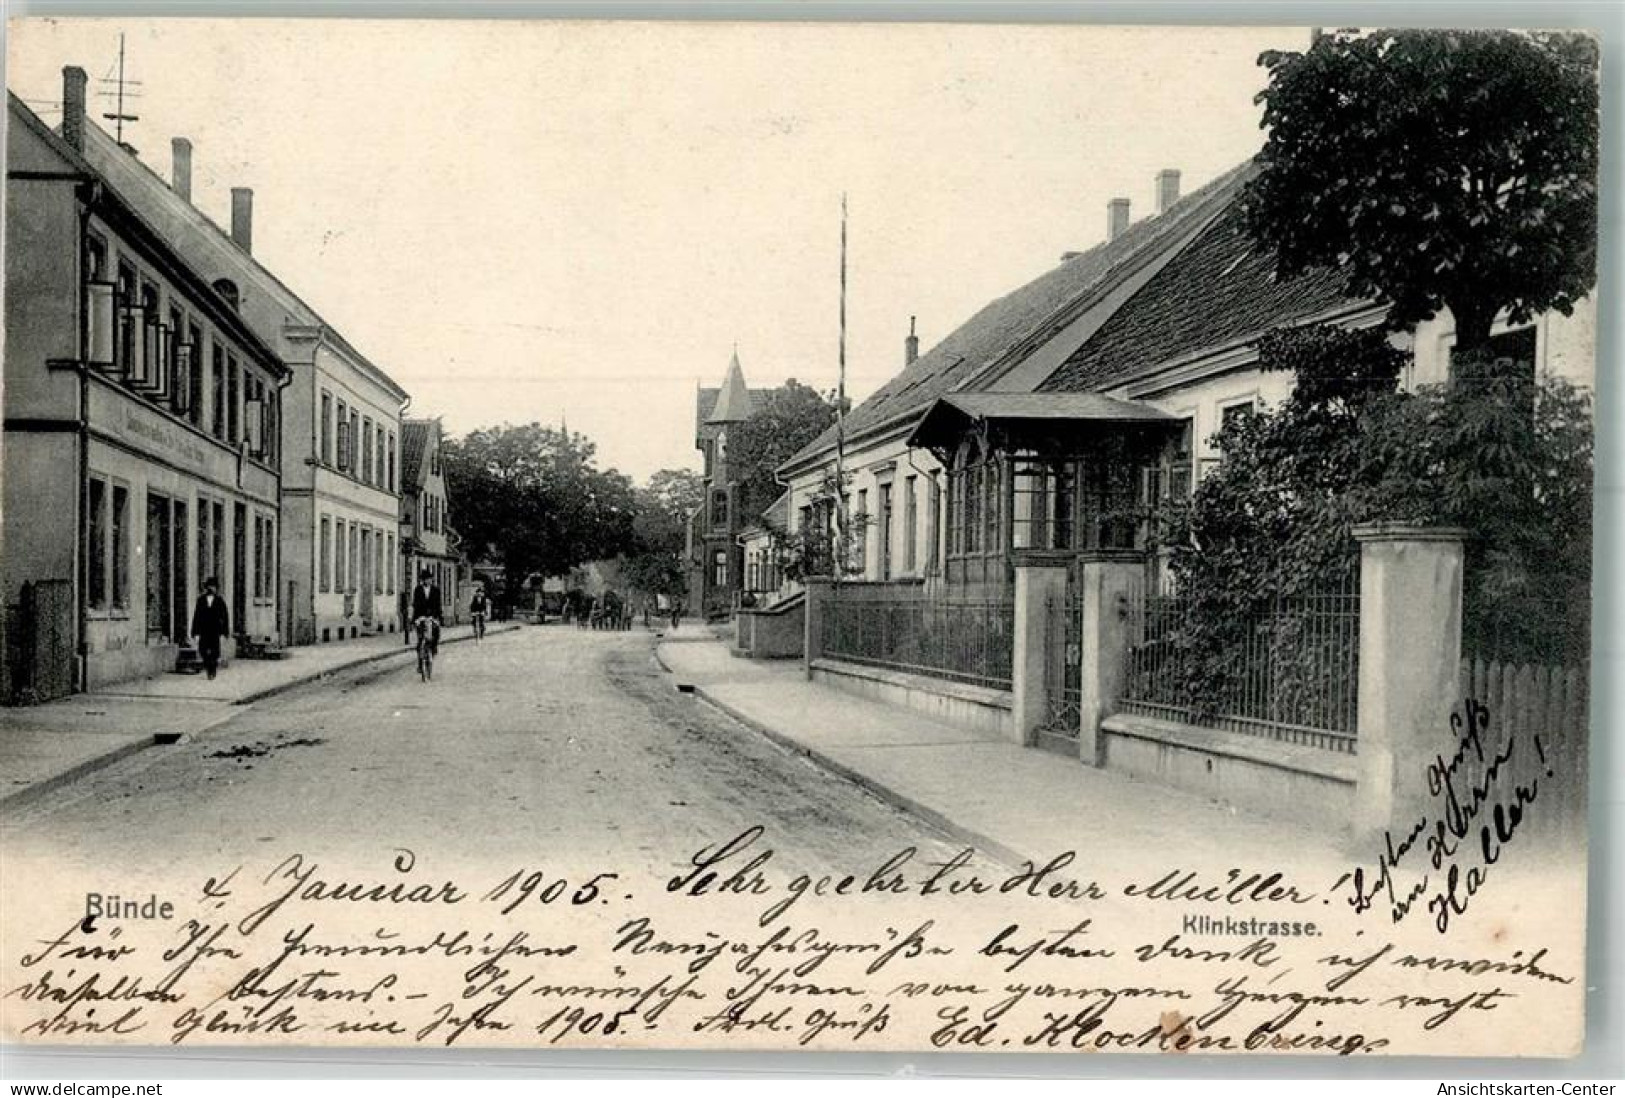 Bünde
4. Januar 1905. Sehr geehrter Herr Müller!
Klinkstrasse.
Für Ihre freundlichen Neujahrsgrüße besten Dank, ich erwidere
dieselben bestens. – Ich wünsche Ihnen von ganzem Herzen recht
viel Glück im Jahre 1905. – Frdl. Gruß Ed. Klockenbring.
Besten Gruß
an Herrn
Haller!
Ansichtskarten-Center